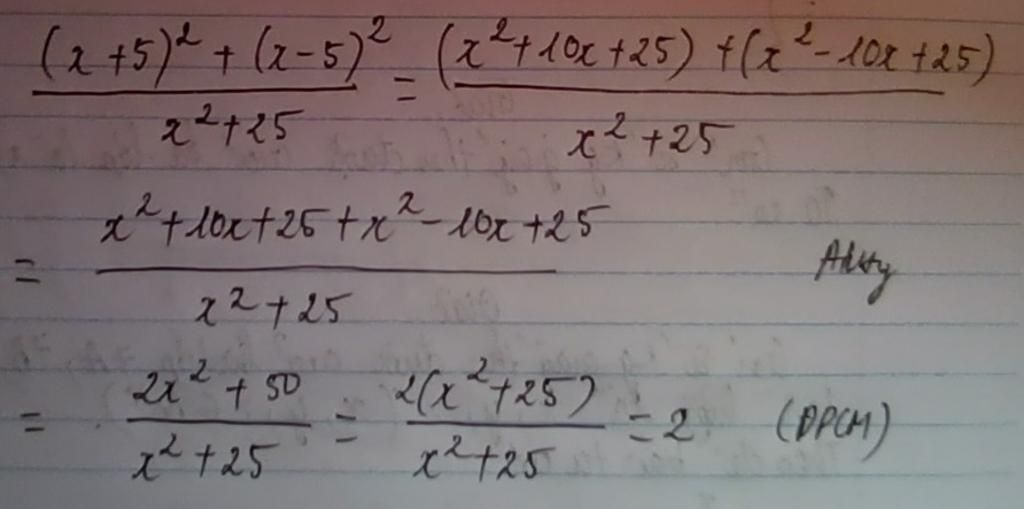 (x+5)² + (x-5)² / x²+25 = (x²+10x+25) + (x²-10x+25) / x²+25
= x²+10x+25+x²-10x+25 / x²+25
= 2x²+50 / x²+25 = 2(x²+25) / x²+25 = 2 (ĐPCM)